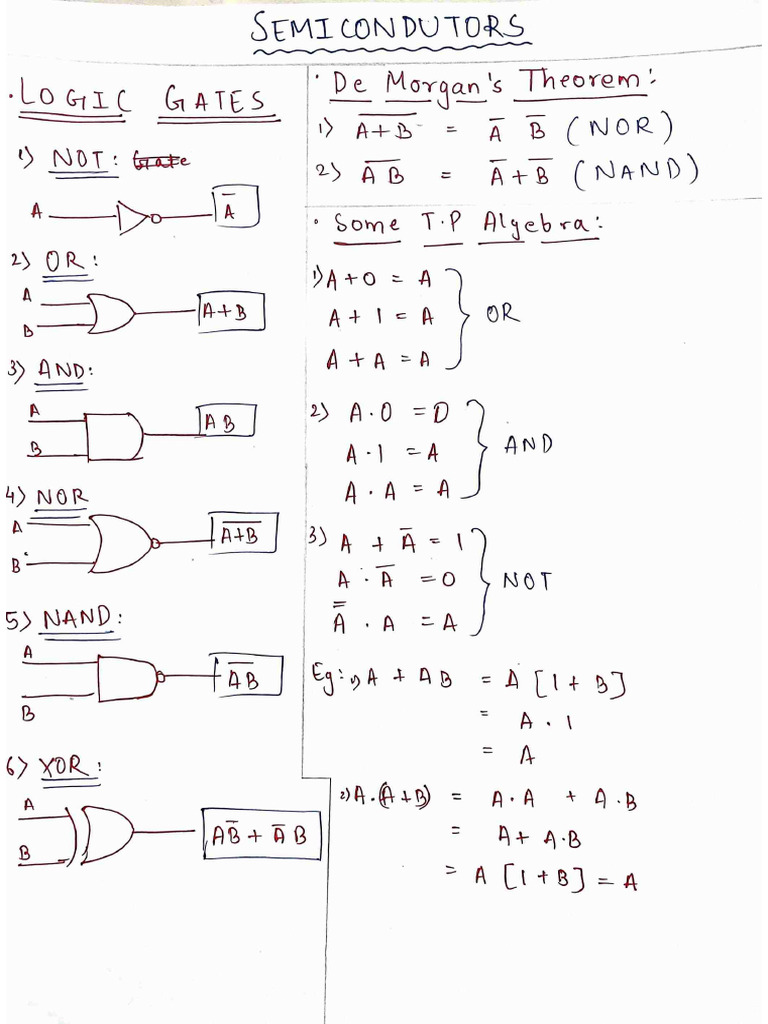 SEMICONDUTORS
· LOGIC GATES
1) NOT: Gate
A
A̅
2) OR:
A
B
A+B
3) AND:
A
B
AB
4) NOR
A
B
A̅+̅B̅
5) NAND:
A
B
A̅B̅
6) XOR:
A
B
AB̅ + A̅B
· De Morgan's Theorem:
1) A̅+̅B̅ = A̅ B̅ (NOR)
2) A̅ ̅B̅ = A̅+B̅ (NAND)
· Some T.P Algebra:
1) A+0 = A
A + 1 = A
A + A = A
OR
2) A.0 = 0
A.1 = A
A . A = A
AND
3) A + A̅ = 1
A . A̅ = 0
A̿ . A = A
NOT
Eg: 1) A + AB = A [1 + B]
= A . 1
= A
2) A.(A+B) = A.A + A.B
= A + A.B
= A [1+B] = A